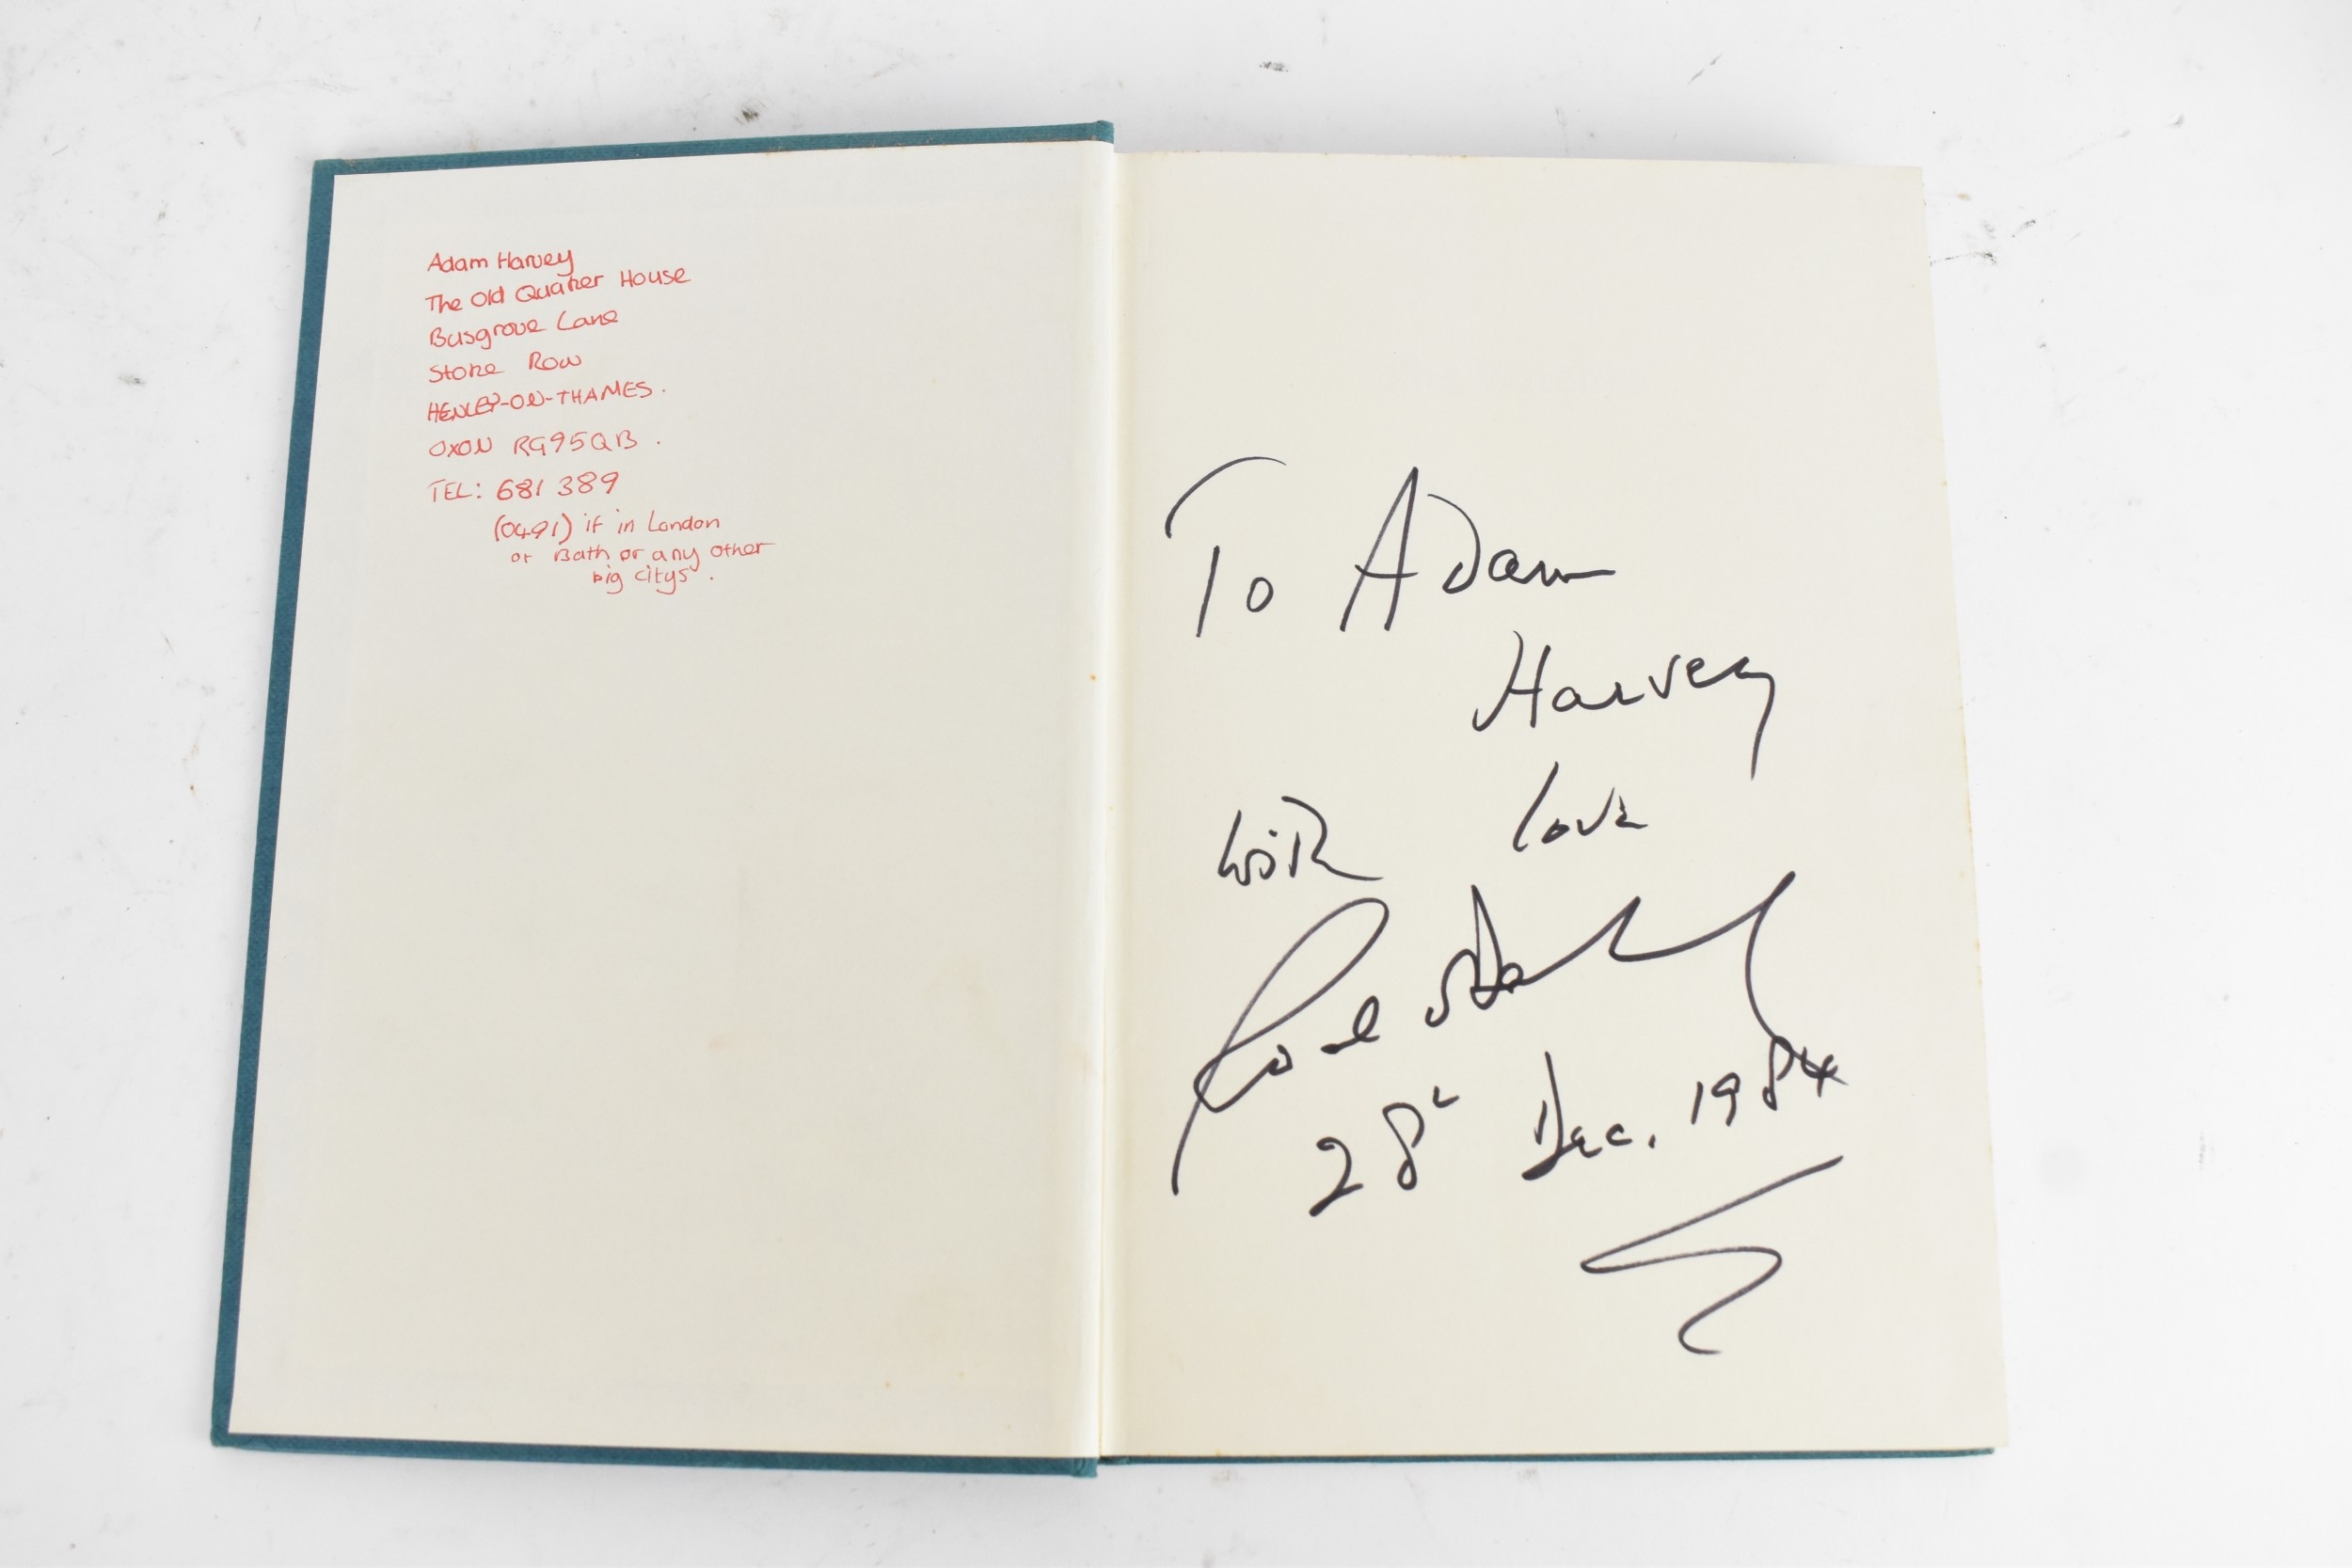 Adam Harvey
The Old Quaker House
Busgrove Lane
Stoke Row
HENLEY-ON-THAMES.
OXON RG95QB.
TEL: 681 389
(0491) if in London
or Bath or any other
big citys.
To Adam
Harvey
with love
Roald Dahl
28th Dec. 1984